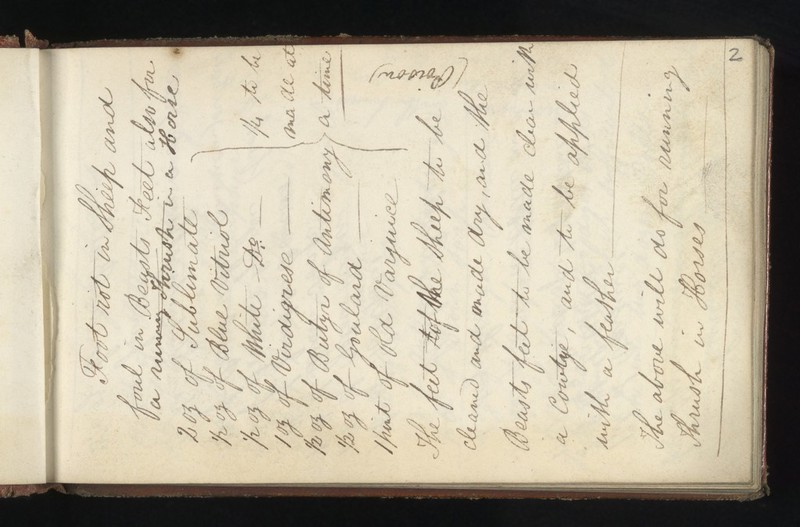 2
Foot rot in Sheep and
foul in Beasts Feet also for
a running Thrush in a Horse
2 oz of Sublimate
½ oz of Blue Vitriol
½ oz of White Do.
1 oz of Virdigrese
½ oz of Butyr of Antimony
½ oz of Goulard
1 pint of Old Varguice
¼ to be
made at
a time
(Poison)
The feet of the Sheep to be
cleand and made dry, and the
Beasts feet to be made clean with
a , and to be applied
with a feather
The above will do for running
Thrush in Horses